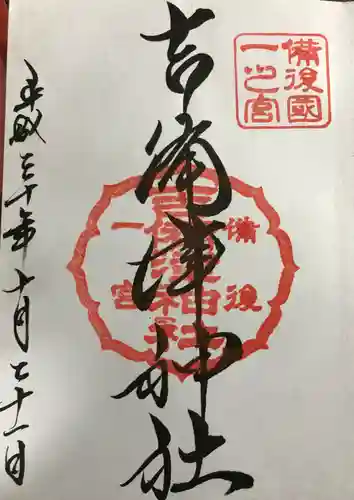 備後國
一之宮
吉備津神社
備後
一宮
吉備津神社
平成三十年十月二十一日